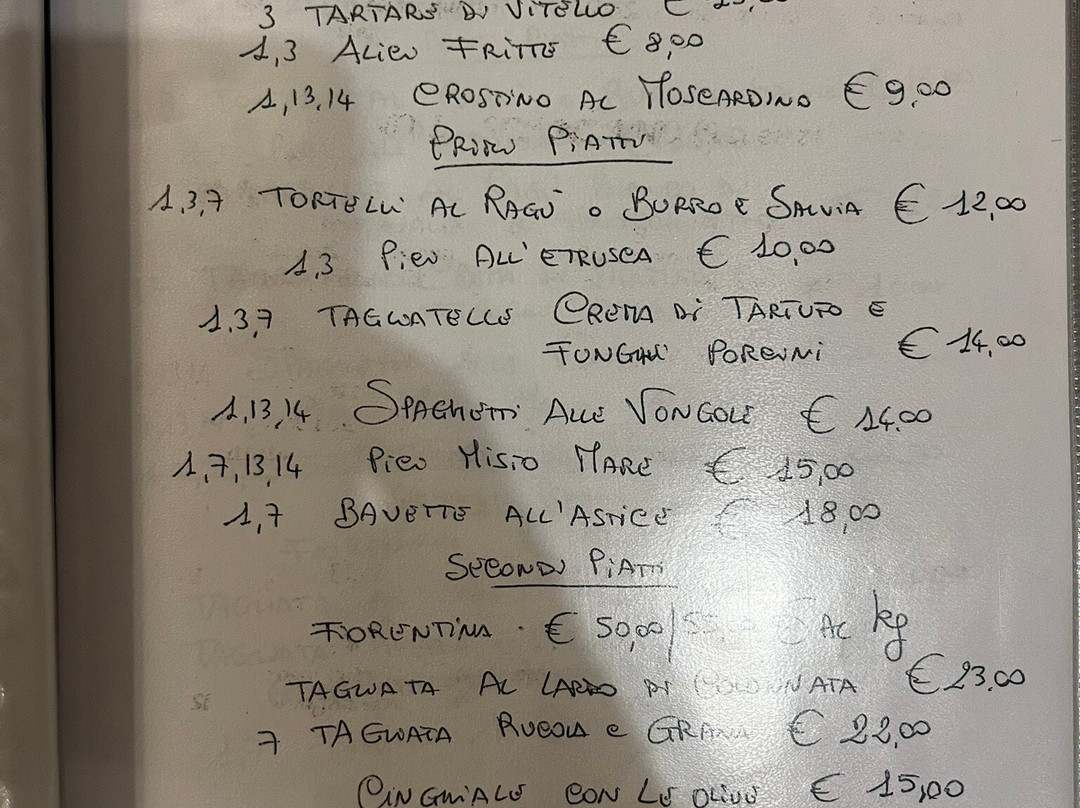 3 TARTARE DI VITELLO €
1,3 ALICI FRITTE € 8,00
1,13,14 CROSTINO AL MOSCARDINO € 9,00
PRIMI PIATTI
1,3,7 TORTELLI AL RAGÙ O BURRO E SALVIA € 12,00
1,3 PICI ALL'ETRUSCA € 10,00
1,3,7 TAGLIATELLE CREMA DI TARTUFO E
FUNGHI PORCINI € 14,00
1,13,14 SPAGHETTI ALLE VONGOLE € 14,00
1,7,13,14 PICI MISTO MARE € 15,00
1,7 BAVETTE ALL'ASTICE € 18,00
SECONDI PIATTI
FIORENTINA . € 50,00/55,00 € AL kg
TAGLIATA AL LARDO DI COLONNATA € 23,00
7 TAGLIATA RUCOLA e GRANA € 22,00
CINGHIALE CON LE OLIVE € 15,00